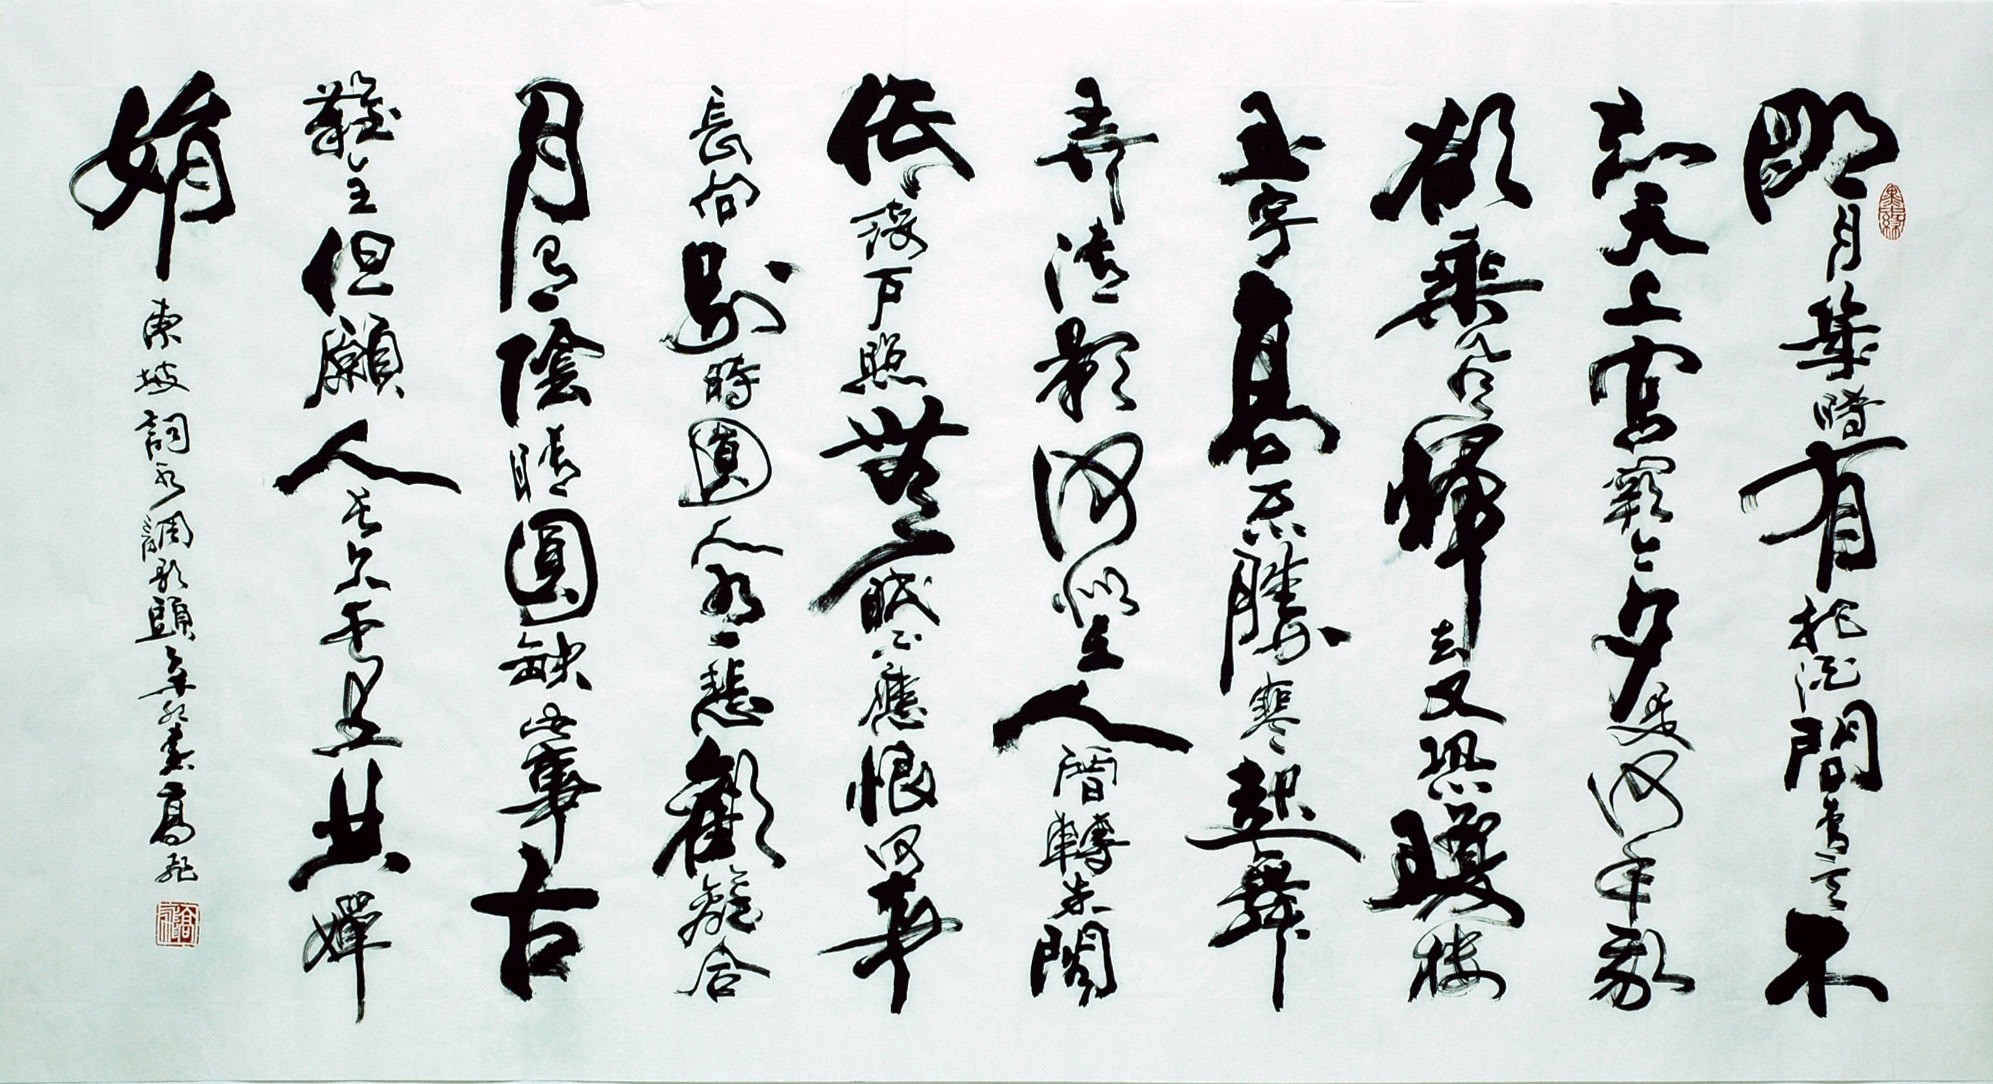 明月幾時有把酒問青天不
知天上宮闕今夕是何年我
欲乘風歸去又恐瓊樓
玉宇高不勝寒起舞
弄清影何似在人間轉朱閣
低綺戶照無眠不應恨何事
長向別時圓人有悲歡離合
月有陰晴圓缺此事古
難全但願人長久千里共嬋
娟
東坡詞水調歌頭辛卯春高